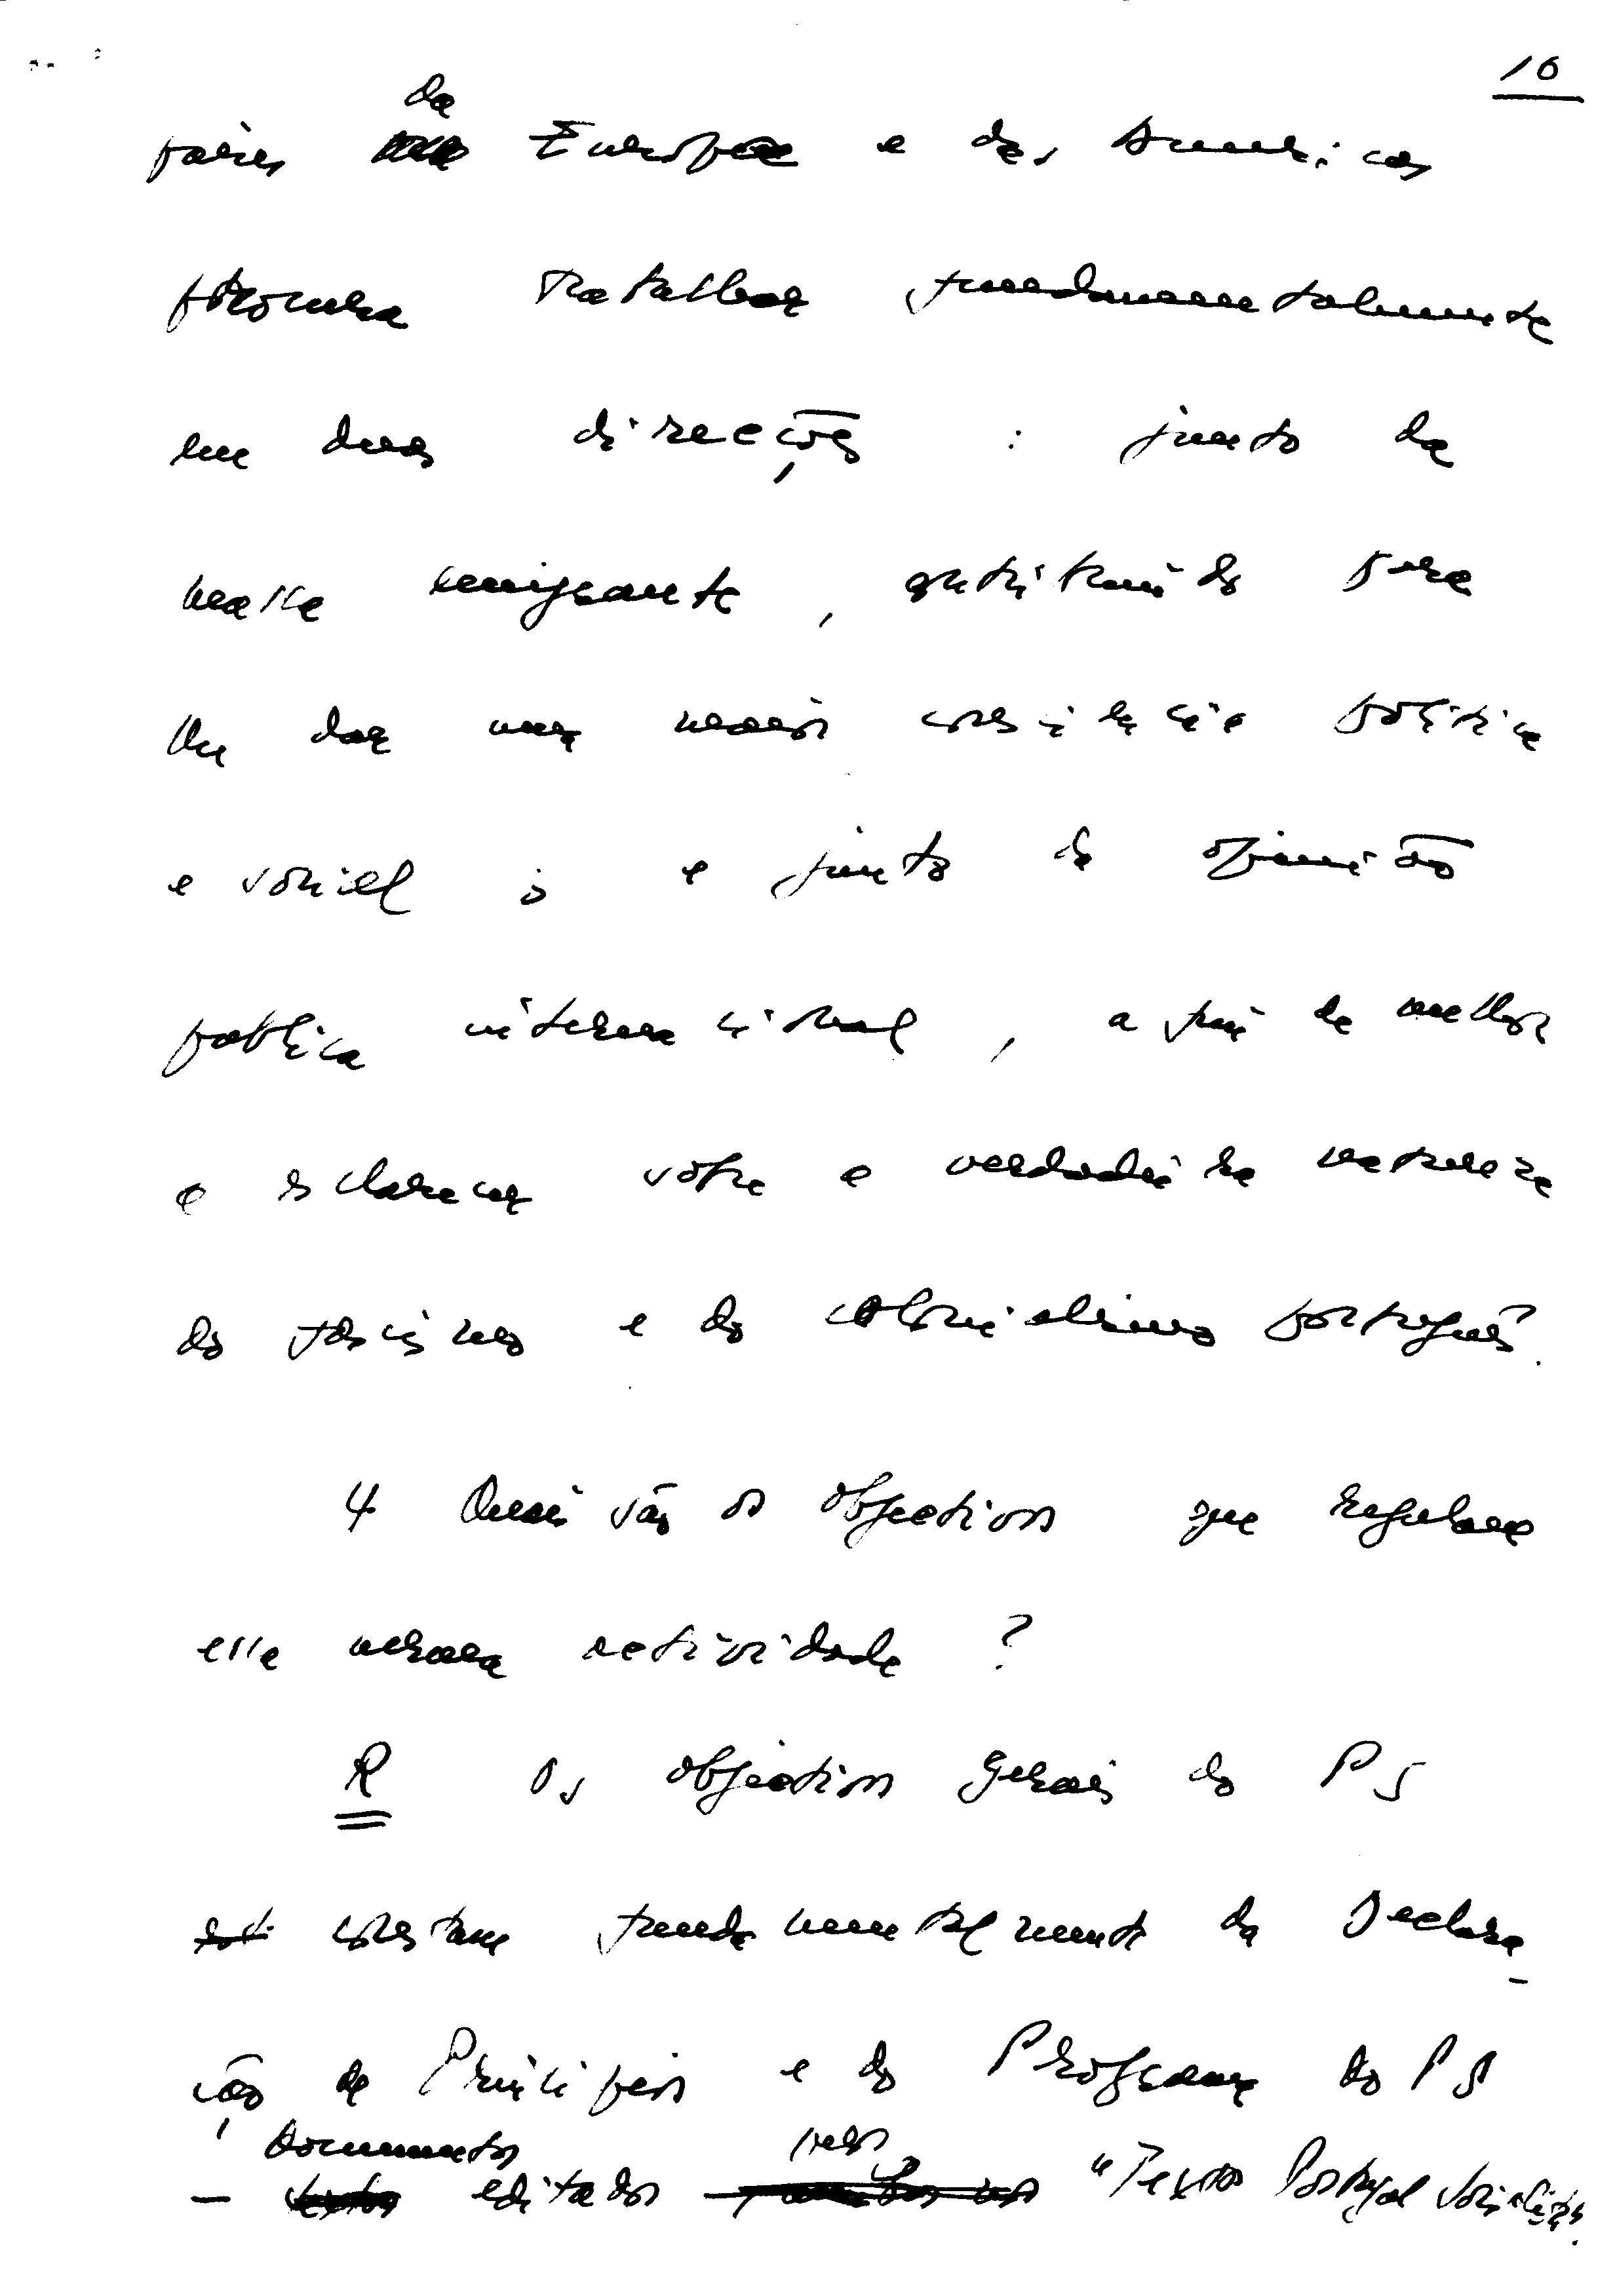 10
da
países Europa e das Américas
procura trabalhar fundamentalmente
em duas direcções : junto da
massa emigrante, contribuindo para
lhe dar uma maior consciência política
e social ; e junto da opinião
pública internacional, a fim de melhor
a esclarecer sobre a verdadeira natureza
do fascismo e do colonialismo português.
4 Quais são os objectivos que regulam
essa vossa actividade ?
R Os objectivos gerais do PS
constam fundamentalmente da Declara-
ção de Princípios e do Programa do PS
Documentos pelos
- textos editados "Textos Portugal Socialista".